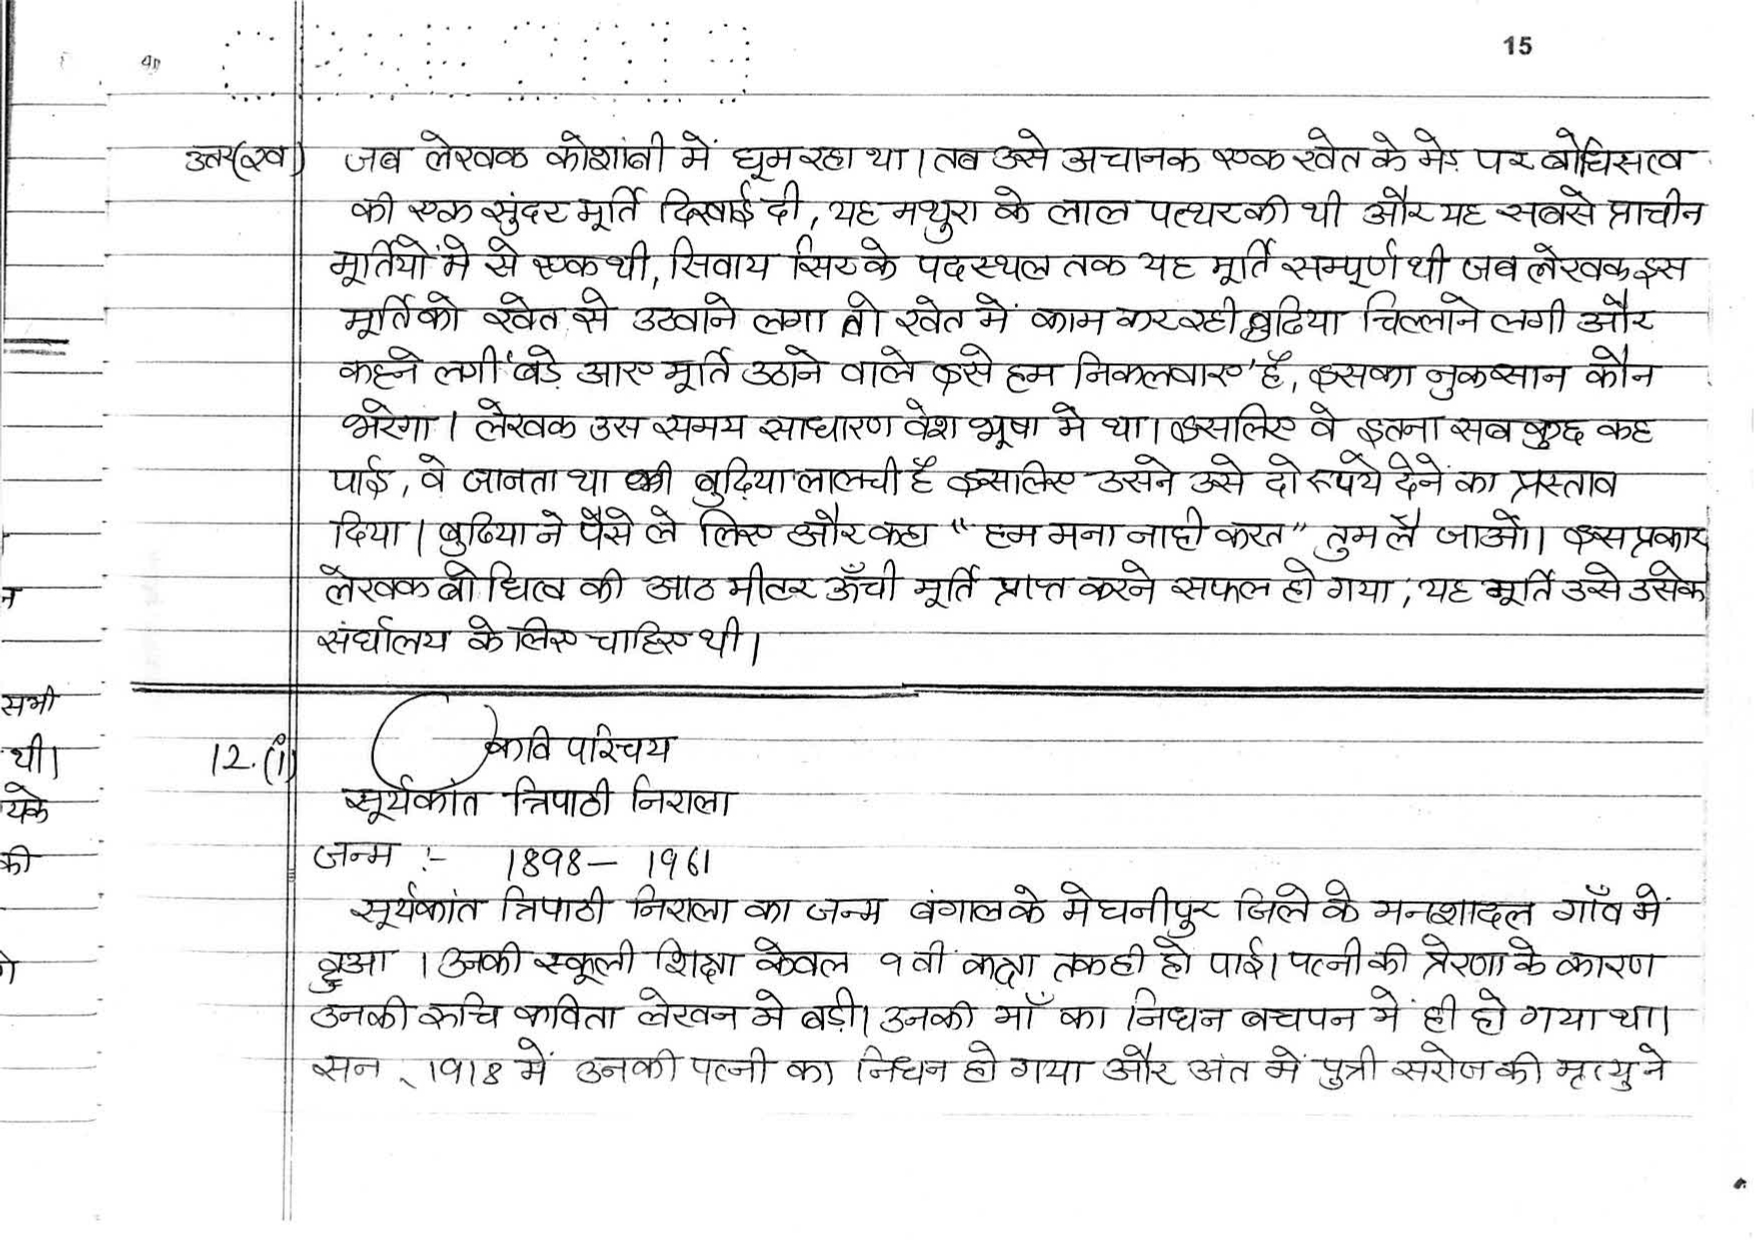 15
उत्तर(ख) जब लेखक कोशांबी में घूम रहा था। तब उसे अचानक एक खेत के मेड़ पर बोधिसत्व
की एक सुंदर मूर्ति दिखाई दी, यह मथुरा के लाल पत्थर की थी और यह सबसे प्राचीन
मूर्तियों में से एक थी, सिवाय सिर के पदस्थल तक यह मूर्ति सम्पूर्ण थी जब लेखक इस
मूर्ति को खेत से उठवाने लगा तो खेत में काम कर रही बुढिया चिल्लाने लगी और
कहने लगी 'बड़े आए मूर्ति उठाने वाले इसे हम निकलवाए है, इसका नुकसान कौन
भरेगा। लेखक उस समय साधारण वेश भूषा मे था। इसलिए वे इतना सब कुछ कह
पाई, वे जानता था की बुढ़िया लालची है इसलिए उसने उसे दो रूपये देने का प्रस्ताव
दिया। बुढिया ने पैसे ले लिए और कहा "हम मना नाही करत" तुम लै जाओ। इस प्रकार
लेखक बोधित्व की आठ मीटर ऊँची मूर्ति प्राप्त करने सफल हो गया, यह मूर्ति उसे उसेक
संर्घालय के लिए चाहिए थी।
12.(i) कवि परिचय
सूर्यकांत त्रिपाठी निराला
जन्म :- 1898 - 1961
सूर्यकांत त्रिपाठी निराला का जन्म बंगाल के मेघनीपुर जिले के मनशादल गाँव में
हुआ । उनकी स्कूली शिक्षा केवल ९ वी कक्षा तक ही हो पाई। पत्नी की प्रेरणा के कारण
उनकी रुचि कविता लेखन मे बड़ी। उनकी माँ का निधन बचपन में ही हो गया था।
सन् 1918 में उनकी पत्नी का निधन हो गया और अंत में पुत्री सरोज की मृत्यु ने
सभी
थी।
यके
की